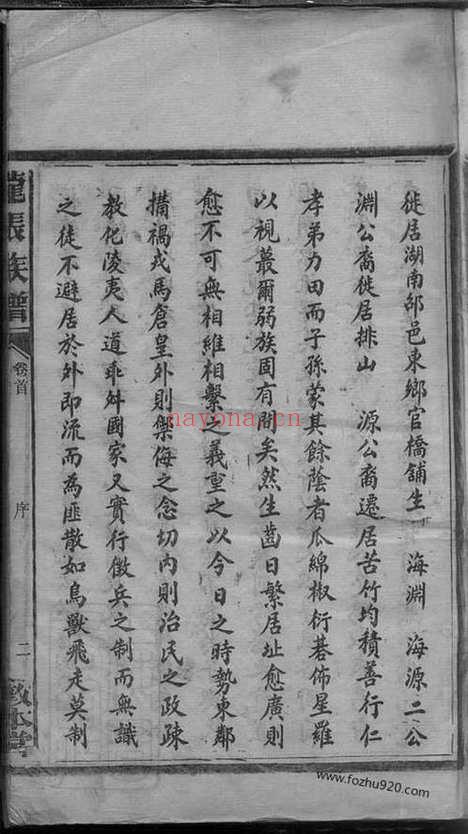 徙居湖南邵邑東鄉官橋舖生　海淵　海源二公
淵公裔徙居排山　源公裔遷居苦竹均積善行仁
孝弟力田而子孫蒙其餘蔭者瓜綿椒衍碁佈星羅
以視蕞爾弱族固有間矣然生齒日繁居址愈廣則
愈不可無相維相繫之義重之以今日之時勢東鄰
搆禍戎馬倉皇外則禦侮之念切內則治民之政疎
教化陵夷人道乖舛國家又實行徵兵之制而無識
之徒不避居於外即流而為匪散如鳥獸飛走莫制
龍張族譜
卷首
序
二
敦本堂
nayona.cn
www.fozhu920.com